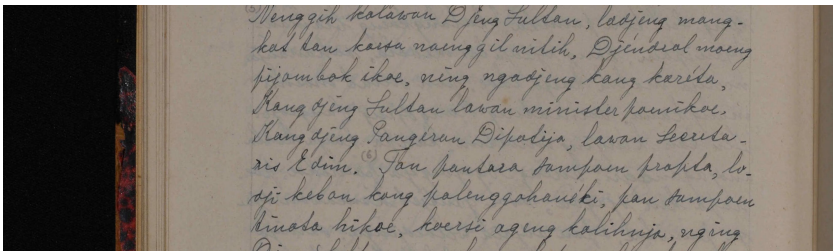 Nenggih kalawan Djeng Sultan, ladjeng mang-
kat tan karsa naenggil nitih, Djendral moeng
pijambak ikoe, ning ngadjeng kang kareta,
Kangdjeng Sultan lawan minister poenikoe.
Kangdjeng Pangeran Dipatija, lawan Secreta-
ris Edim. (6) Tan pantara sampoen prapta, lo-
dji kebon kang palenggahanéki, pan sampoen
tinata hikoe, koersi ageng kalihnja, nging